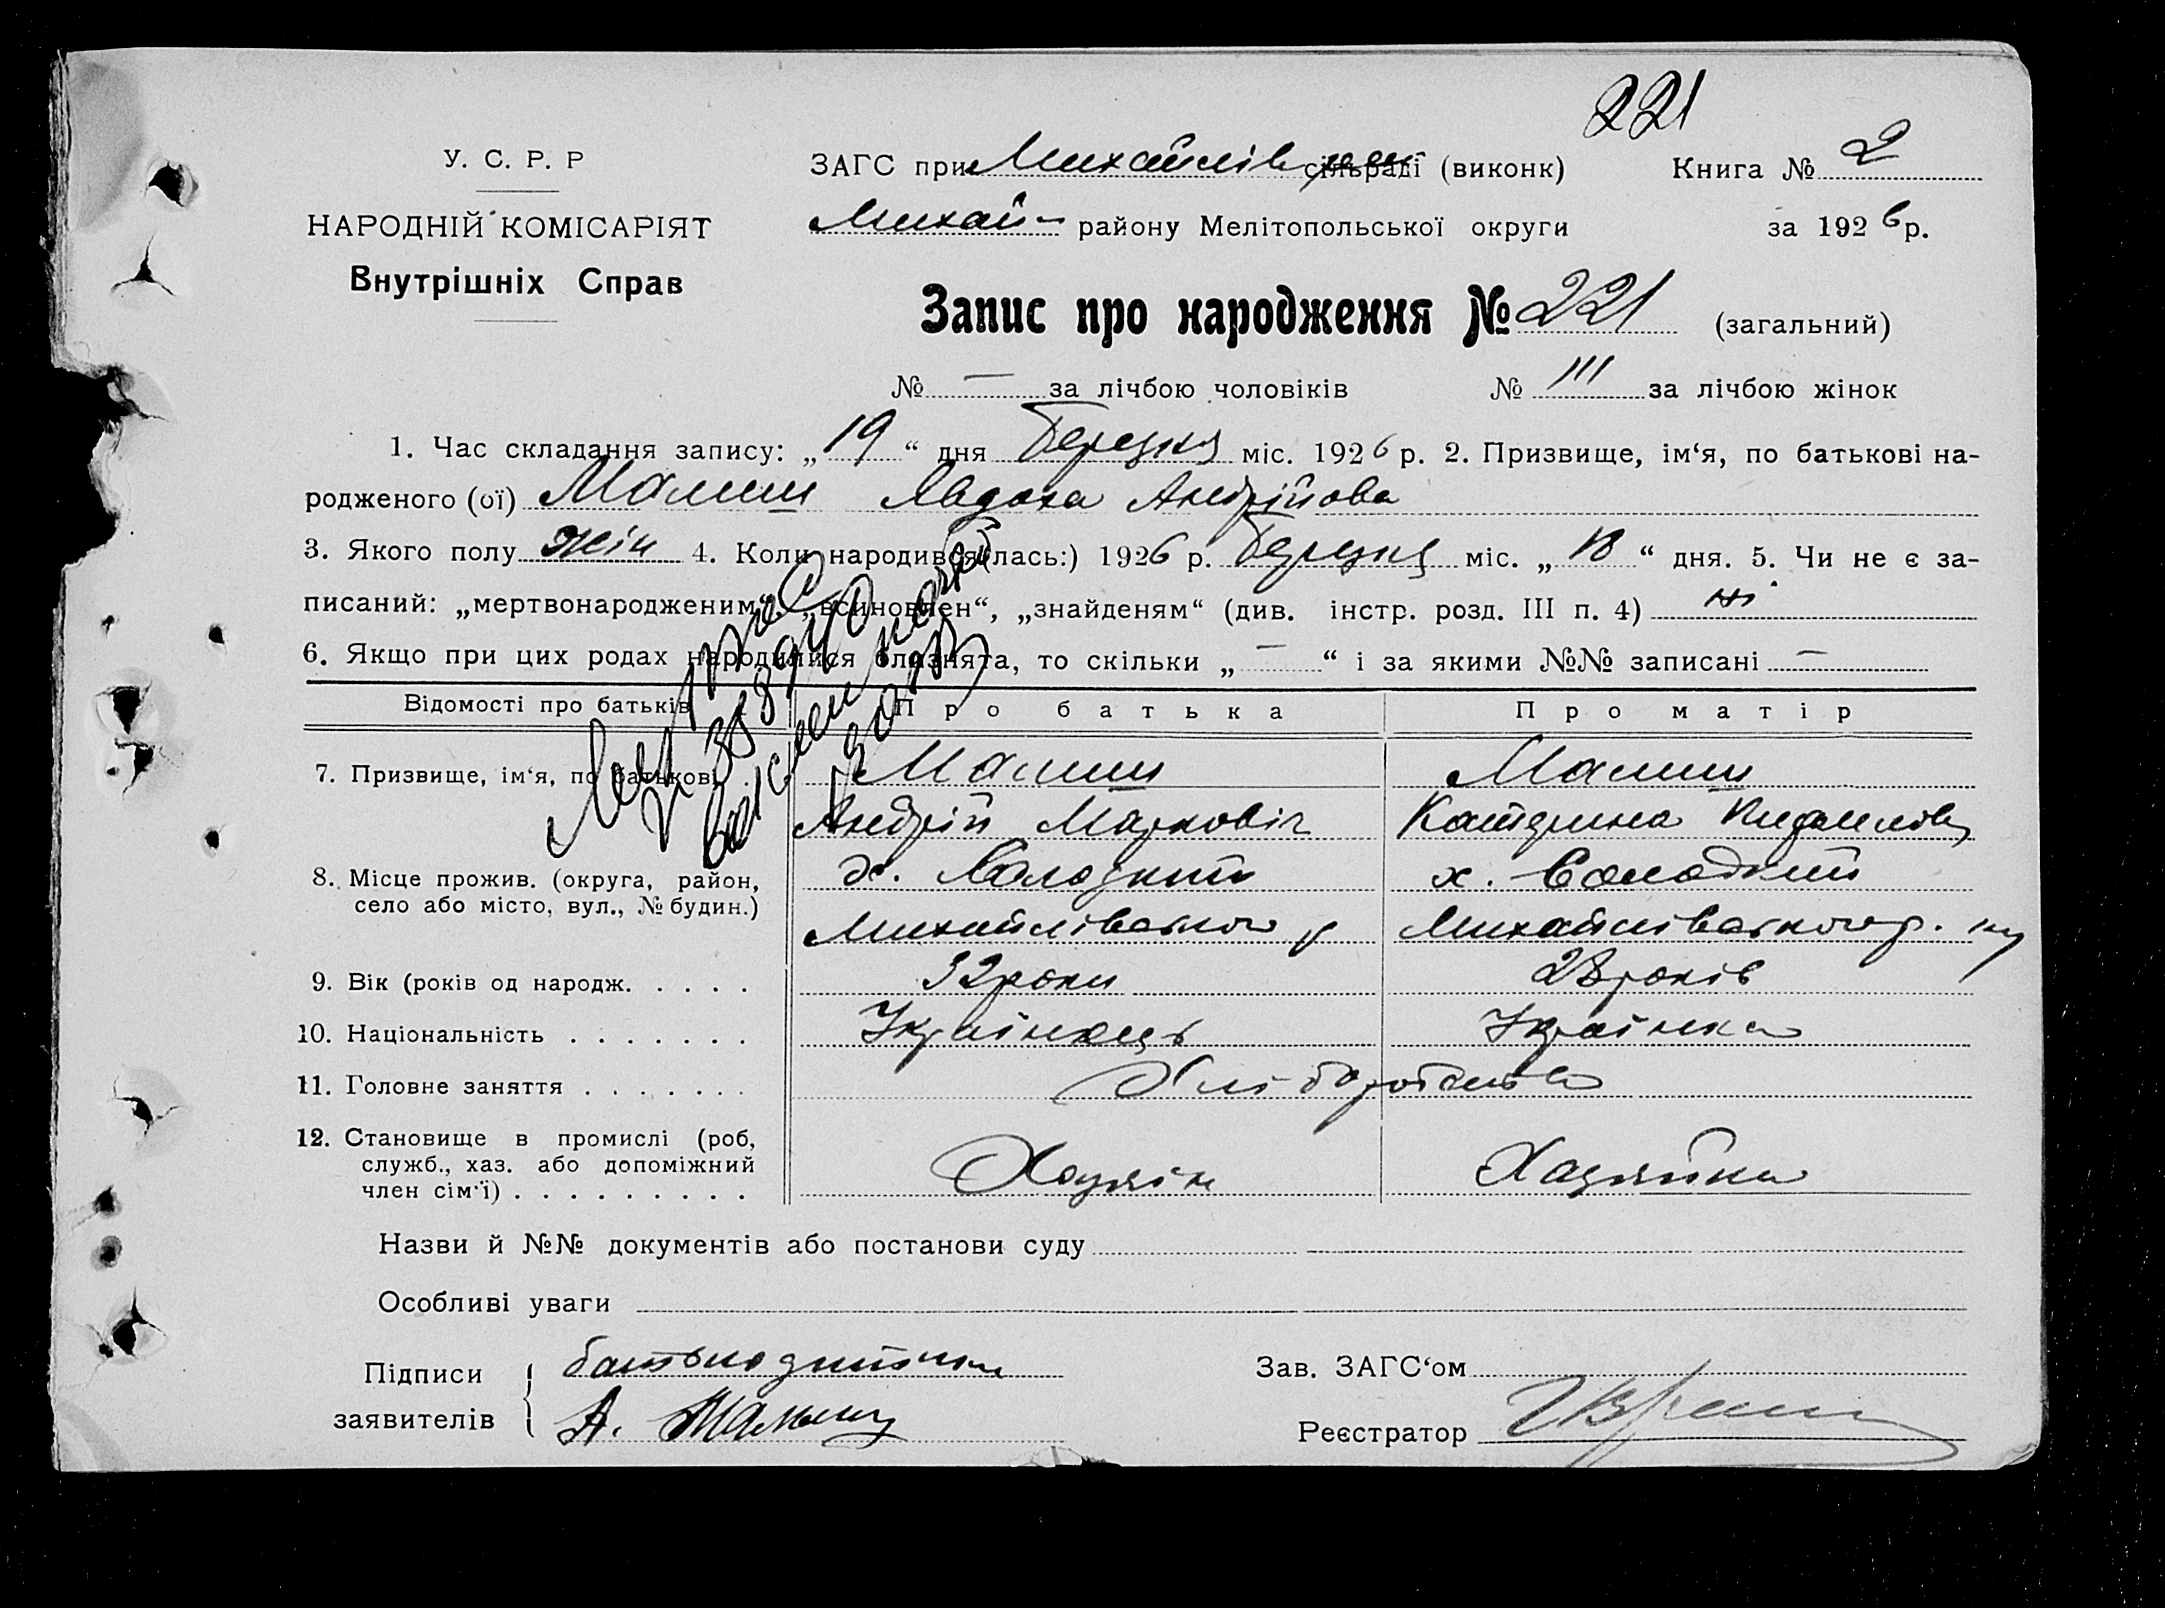 221
У. С. Р. Р
ЗАГС при Михайлів сільраді (виконк) Книга № 2
НАРОДНІЙ КОМІСАРІЯТ
Михай- району Мелітопольської округи за 1926 р.
Внутрішніх Справ
Запис про народження № 221 (загальний)
№ — за лічбою чоловіків № 111 за лічбою жінок
1. Час складання запису: „19“ дня Березня міс. 1926 р. 2. Призвище, ім‘я, по батькові на-
родженого (ої) Малиш Явдоха Андрійова
3. Якого полу жін 4. Коли народився(лась:) 1926 р. Березня міс. „18“ дня. 5. Чи не є за-
писаний: „мертвонародженим“, „всиновлен“, „знайденям“ (див. інстр. розд. III п. 4) ні
6. Якщо при цих родах народилися близнята, то скільки „—“ і за якими №№ записані —
Відомості про батьків Про батька Про матір
7. Призвище, ім‘я, по батькові Малиш Малиш
Андрій Маркович Катерина
8. Місце прожив. (округа, район, х. Солодкий х. Солодкий
село або місто, вул., № будин.)
Михайлівськог р Михайлівського р.
9. Вік (років од народж. . . . . 32 роки 28 років
10. Національність . . . . . . . Українець Українка
11. Головне заняття . . . . . . . Хліборобство
12. Становище в промислі (роб,
служб., хаз. або допоміжний Хазяїн Хазяйка
член сім‘ї) . . . . . . . . .
Назви й №№ документів або постанови суду
Особливі уваги
Підписи батько дитини Зав. ЗАГС‘ом
заявителів А. Малиш Реєстратор